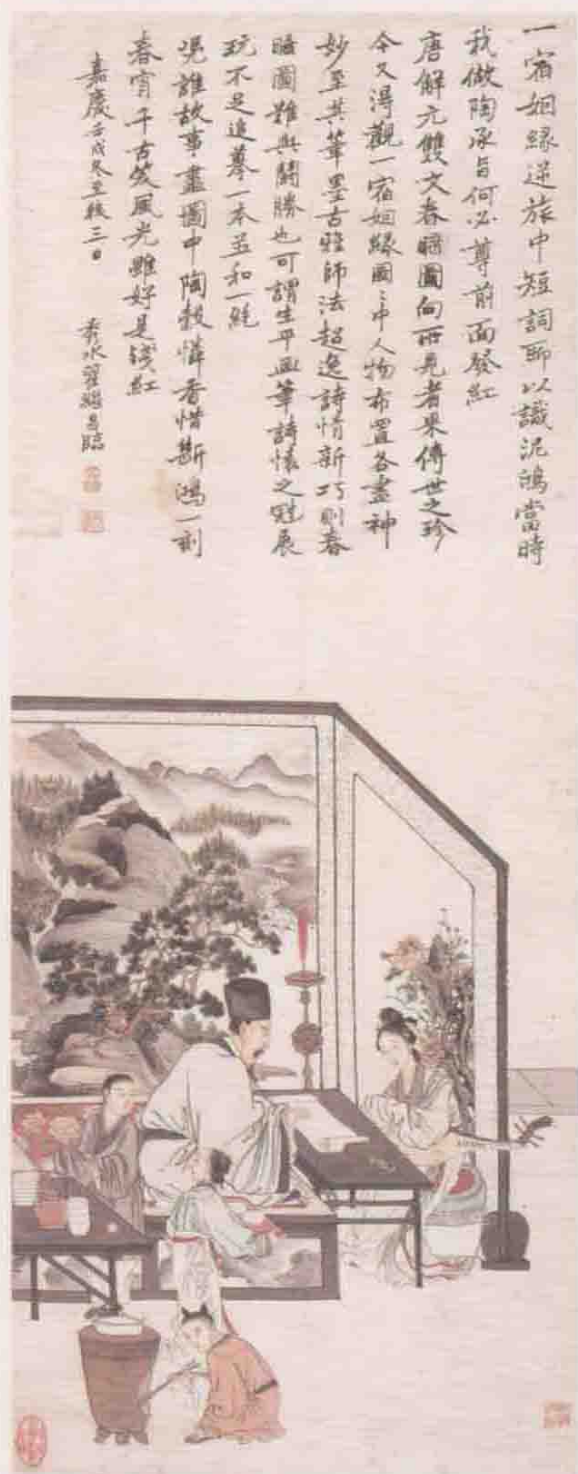 一宿姻緣逆旅中短詞聊以識泥鴻當時
我做陶承旨何必尊前面發紅
唐解元雙文春睡圖向所見者果傳世之珍
今又得觀一宿姻緣圖〻中人物布置各盡神
妙至其筆墨古雅師法超逸詩情新巧則春
睡圖難與鬭勝也可謂生平画筆詩懷之魁展
玩不足追摹一本並和一絕
誰故事畫圖中陶穀憐香惜斷鴻一刻
春宵千古笑風光雖好是殘紅
嘉慶壬戌冬至後三日 秀水翟繼昌臨